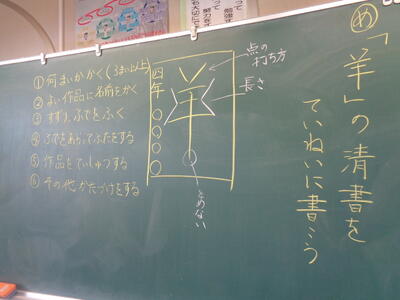 め「羊」の清書を
ていねいに書こう
点の
打ち方
長さ
羊
とめない
四年 〇〇〇〇
①何まいかかく(3まい以上)
②よい作品に名前をかく
③すずり、ふでをふく
④ふでをあらってふたをする
⑤作品をていしゅつする
⑥その他かたづけをする